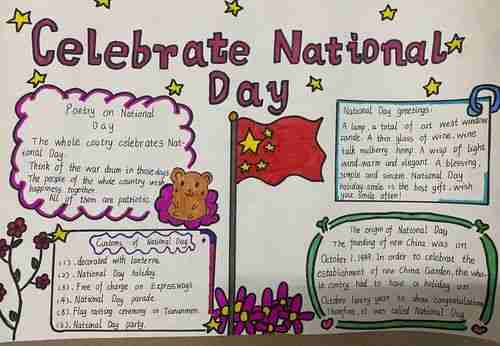 Celebrate National
Day
Poetry on National
Day
The whole coutry celebrates Nat-
ional Day.
Think of the war drum in those days
The people of the whole country wish
happiness together
All of them are patriotic.
National Day greetings:
A lamp, a total of cut west window
candle. A thin glass of wine, wine
talk mulberry hemp. A wisp of light
wind, warm and elegant. A blessing,
simple and sincere. National Day
holiday, smile is the best gift, wish
you smile often!
Customs of National Day
(1). decorated with lanterns.
(2). National Day holiday.
(3). Free of charge on Expressways
(4). National Day parade.
(5). Flag raising ceremony on Tiananmen.
(6). National Day party.
The origin of National Day
The founding of new China was on
October 1, 1949. In order to celebrate the
establishment of new China Garden, the who-
le contry had to have a holiday on
October 1 every year to show congratulations
Therefore, it was called National Day